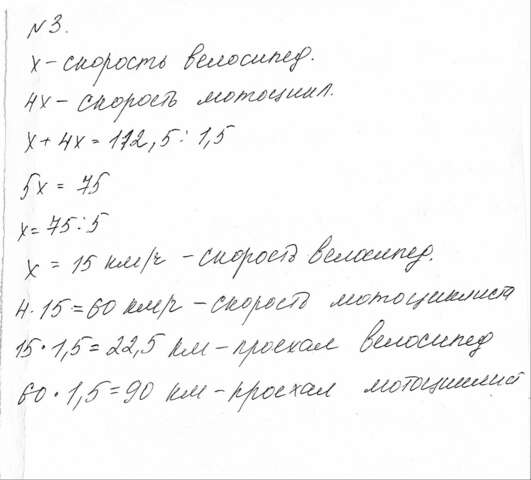 №3.
х – скорость велосипед.
4х – скорость мотоцикл.
х + 4х = 112,5 : 1,5
5х = 75
х = 75 : 5
х = 15 км/ч – скорость велосипед.
4 · 15 = 60 км/ч – скорость мотоциклиста
15 · 1,5 = 22,5 км – проехал велосипед
60 · 1,5 = 90 км – проехал мотоциклист